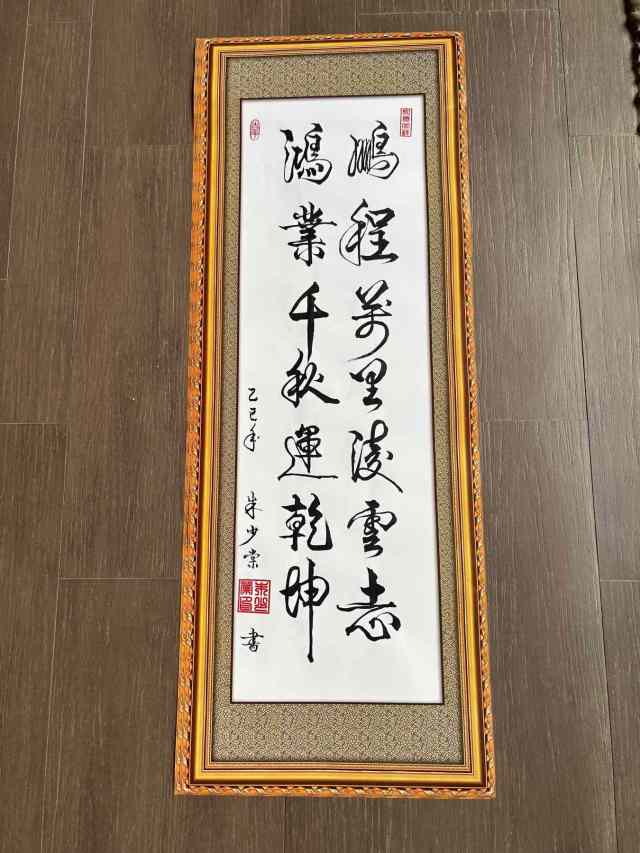 鵬程萬里淩雲志
鴻業千秋運乾坤
乙巳年 朱少棠 書